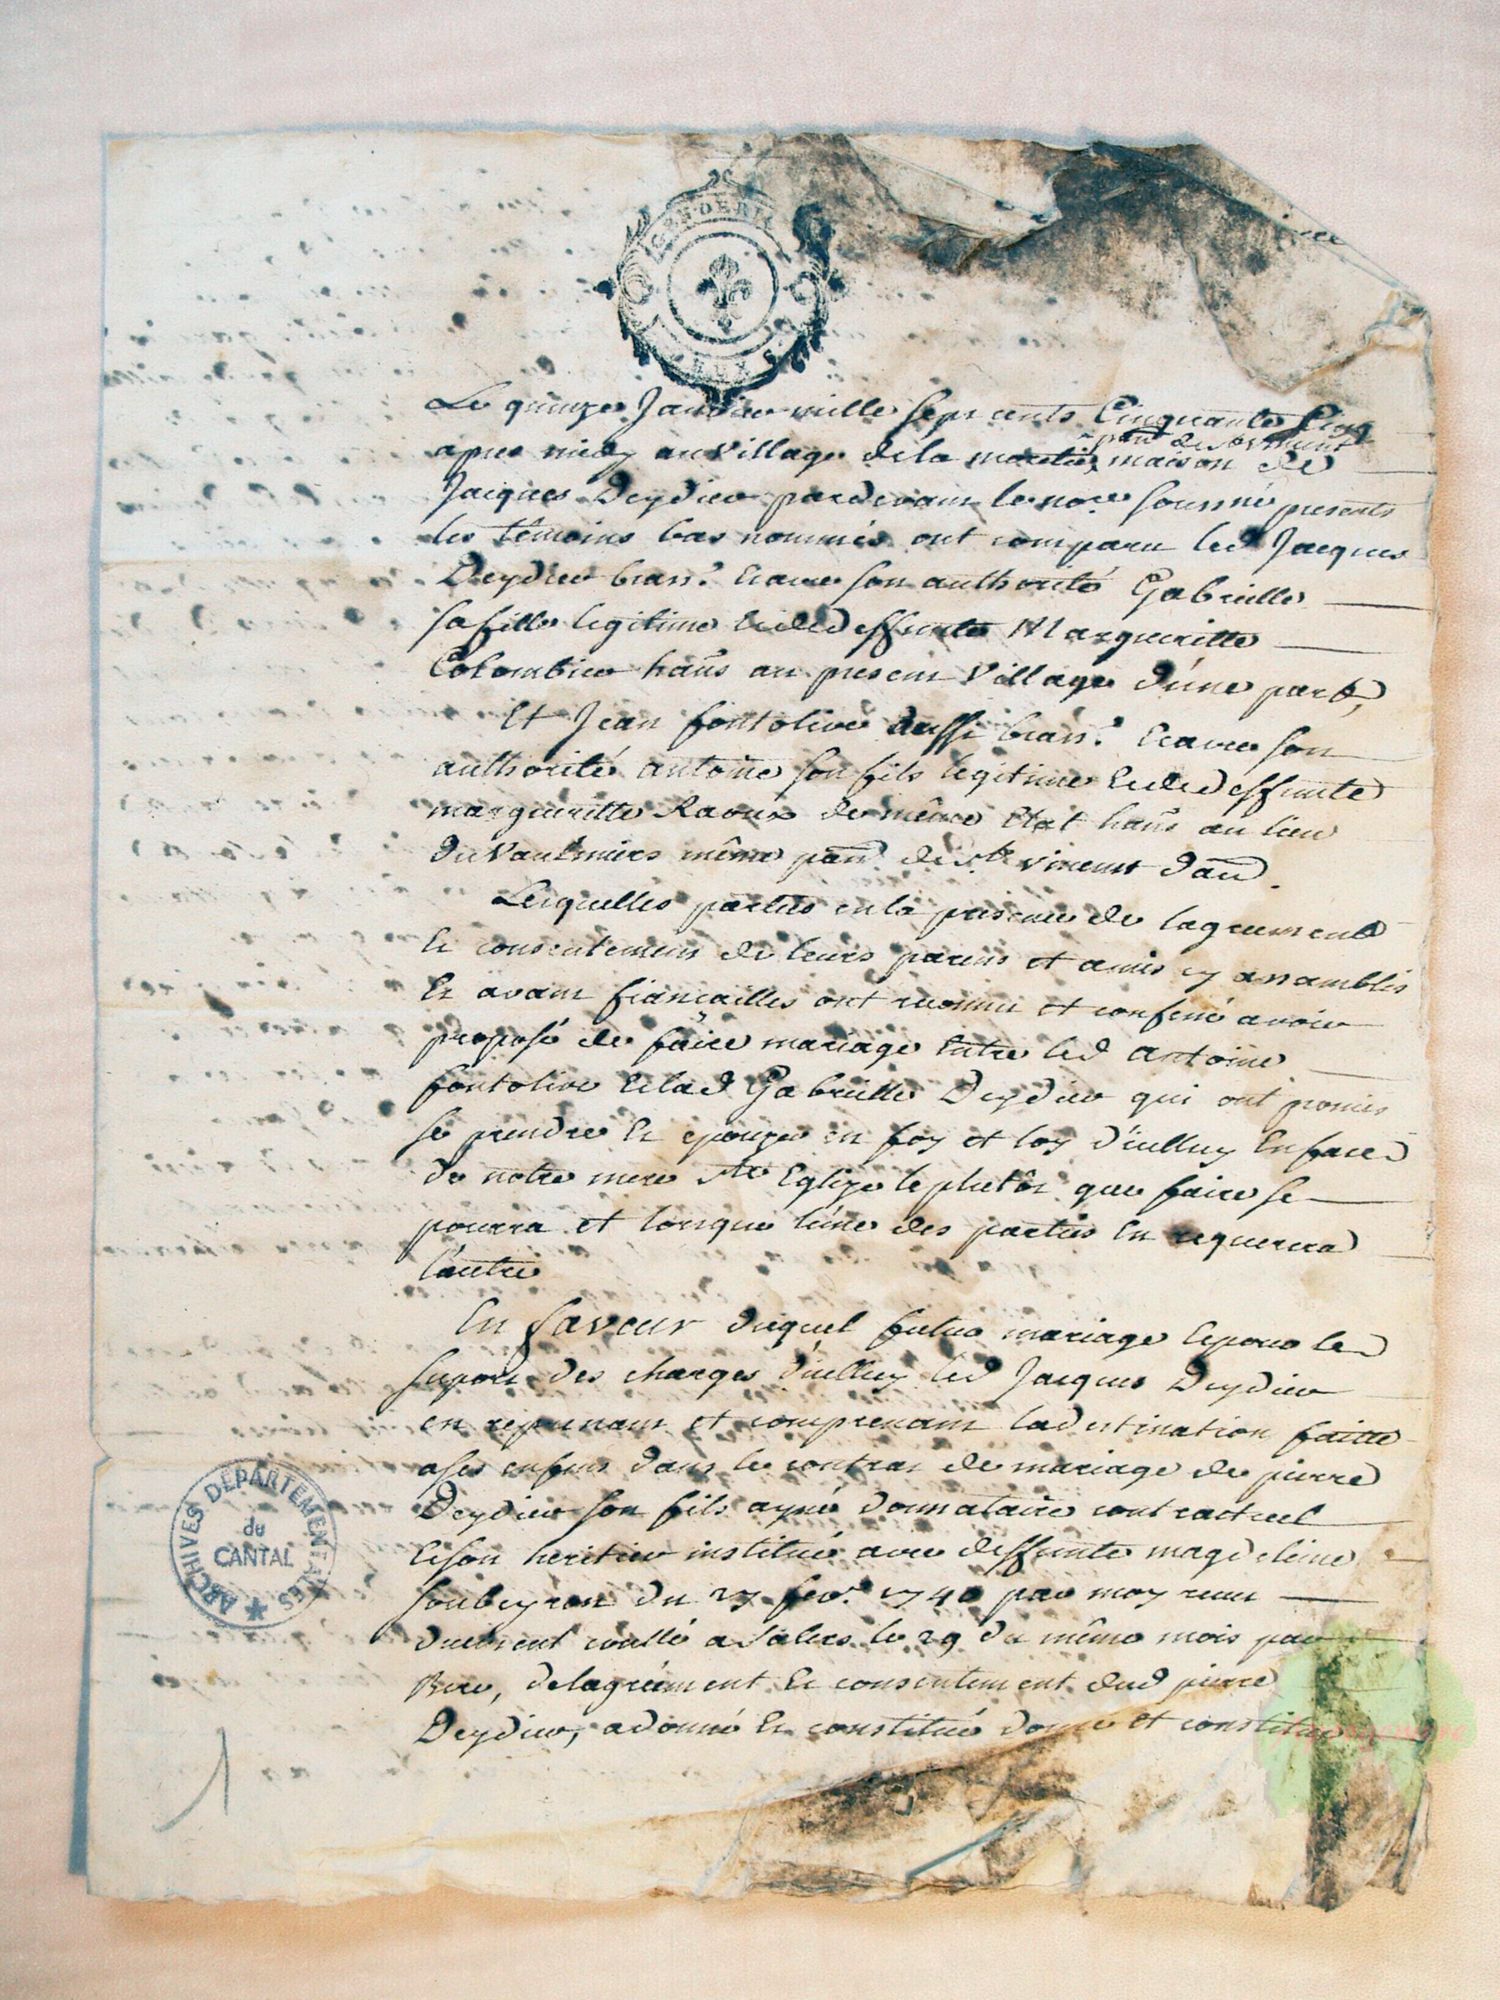 GENDERIE
DEUX S
Le quinze Janvier mille sept cents Cinquante Cinq
apres midy au village de la maison de
Jacques Deydier pardevant le nore soussné presents
les témoins bas nommés ont comparu led Jacques
Deydier Et avec son authorité Gabrielle
sa fille legitime Et de deffunte Margueritte
Colombier hañs au present Village d'une part,
Et Jean fontolive aussi Et avec son
authorité antoine son fils legitime Et de deffunte
margueritte Raoux de même Etat hañs au lieu
du Vaulmiers même parr de st vincent d'au
Lesquelles parties en la presence de lagreement
Et consentement de leurs parens et amis y assamblés
Et avant fiançailles ont reconnu et confessé avoir
proposé de faire mariage Entre led antoine
fontolive Et lad Gabrielle Deydier qui ont promis
se prendre Et epouzer en foy et loy d'icelluy En face
de notre mere ste Eglize le plutôt que faire se
pourra et lorsque l'une des parties En requerera
l'autre
En faveur duquel futur mariage Et pour le
suport des charges d'icelluy led Jacques Deydier
en reprenant et comprenant la destination faitte
a ses enfens dans le contrat de mariage de pierre
Deydier son fils ayné donnataire contractuel
Et son heritier institué avec deffunte magdelaine
Soubeyron du 27 fevr 1740 par moy receu
duement contlé a Salers le 29 du même mois par
delagreement Et consentement dud pierre
Deydier, a donné Et constitué donne et constitue
ARCHIVES DEPARTEMENTALES
du
CANTAL
1